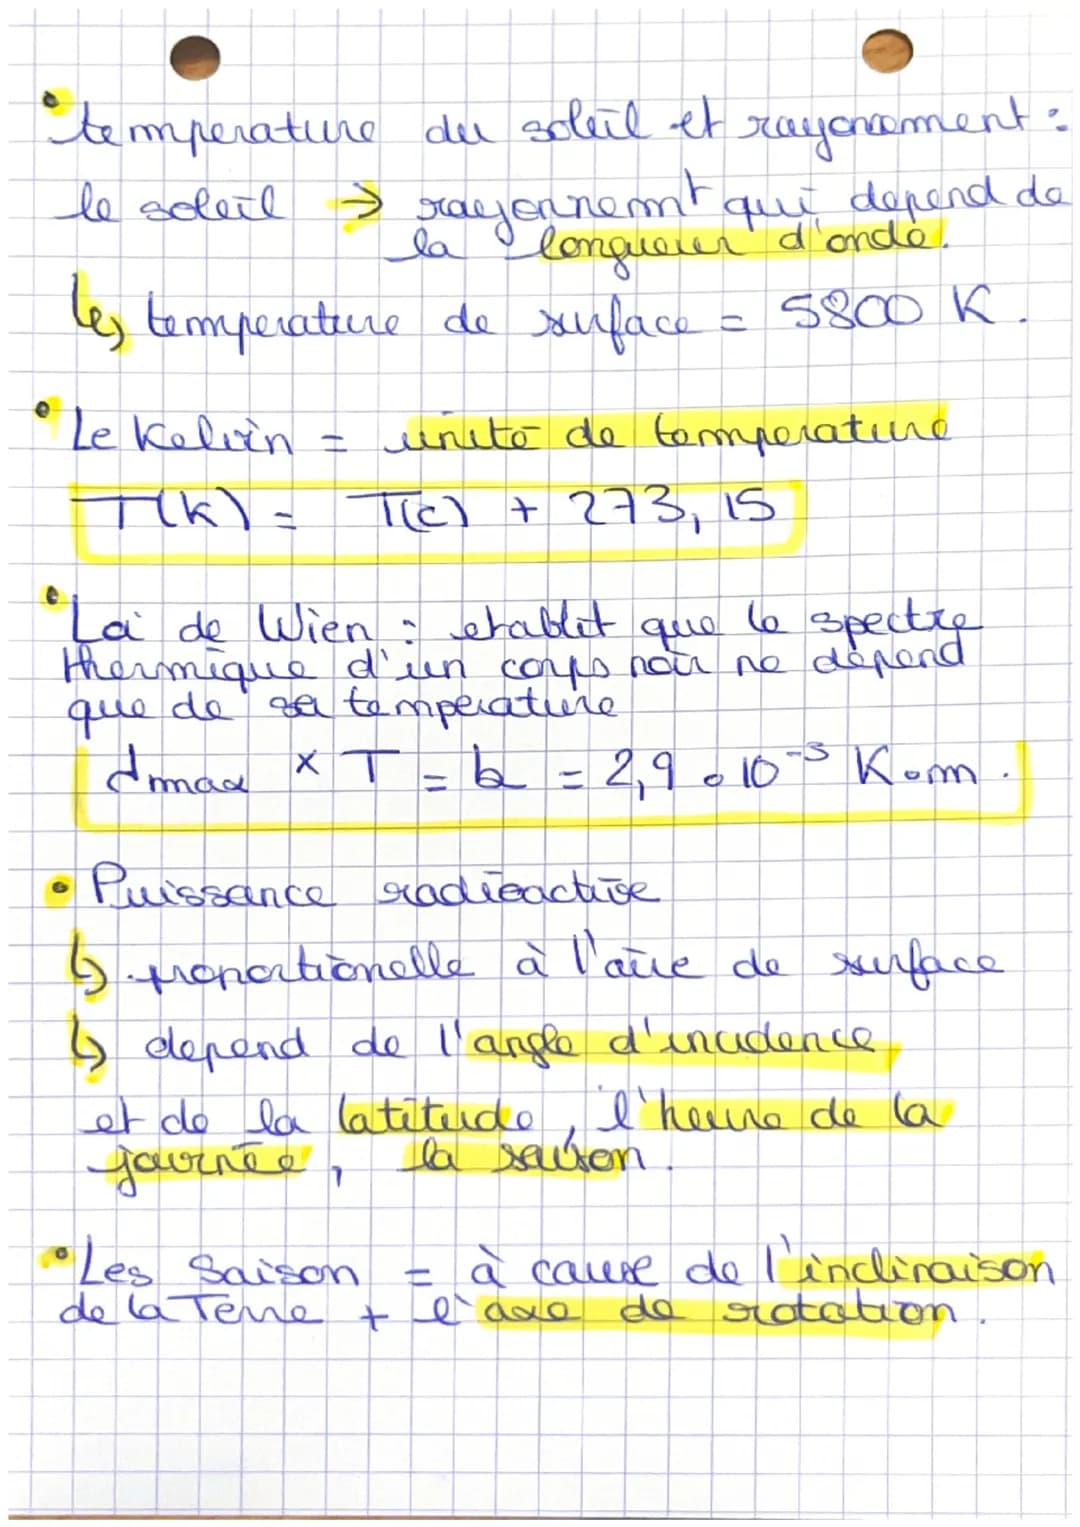 • temperature du soleil et rayonnement :
le soleil → rayonnemnt qui depend de
la longueur d'onde.
↳ temperature de surface = 5800 K.
• Le Kelvin = unité de temperature
T(k) = T(c) + 273,15
• Loi de Wien : etablit que le spectre
thermique d'un corps noir ne dépend
que de sa temperature
dmax × T = b = 2,9 • 10⁻³ K.m.
• Puissance radioactive
↳ proportionelle à l'aire de surface
↳ depend de l'angle d'incidence,
et de la latitude, l'heure de la
journée, la saison.
• Les Saison = à cause de l'inclinaison
de la Terre + l'axe de rotation.